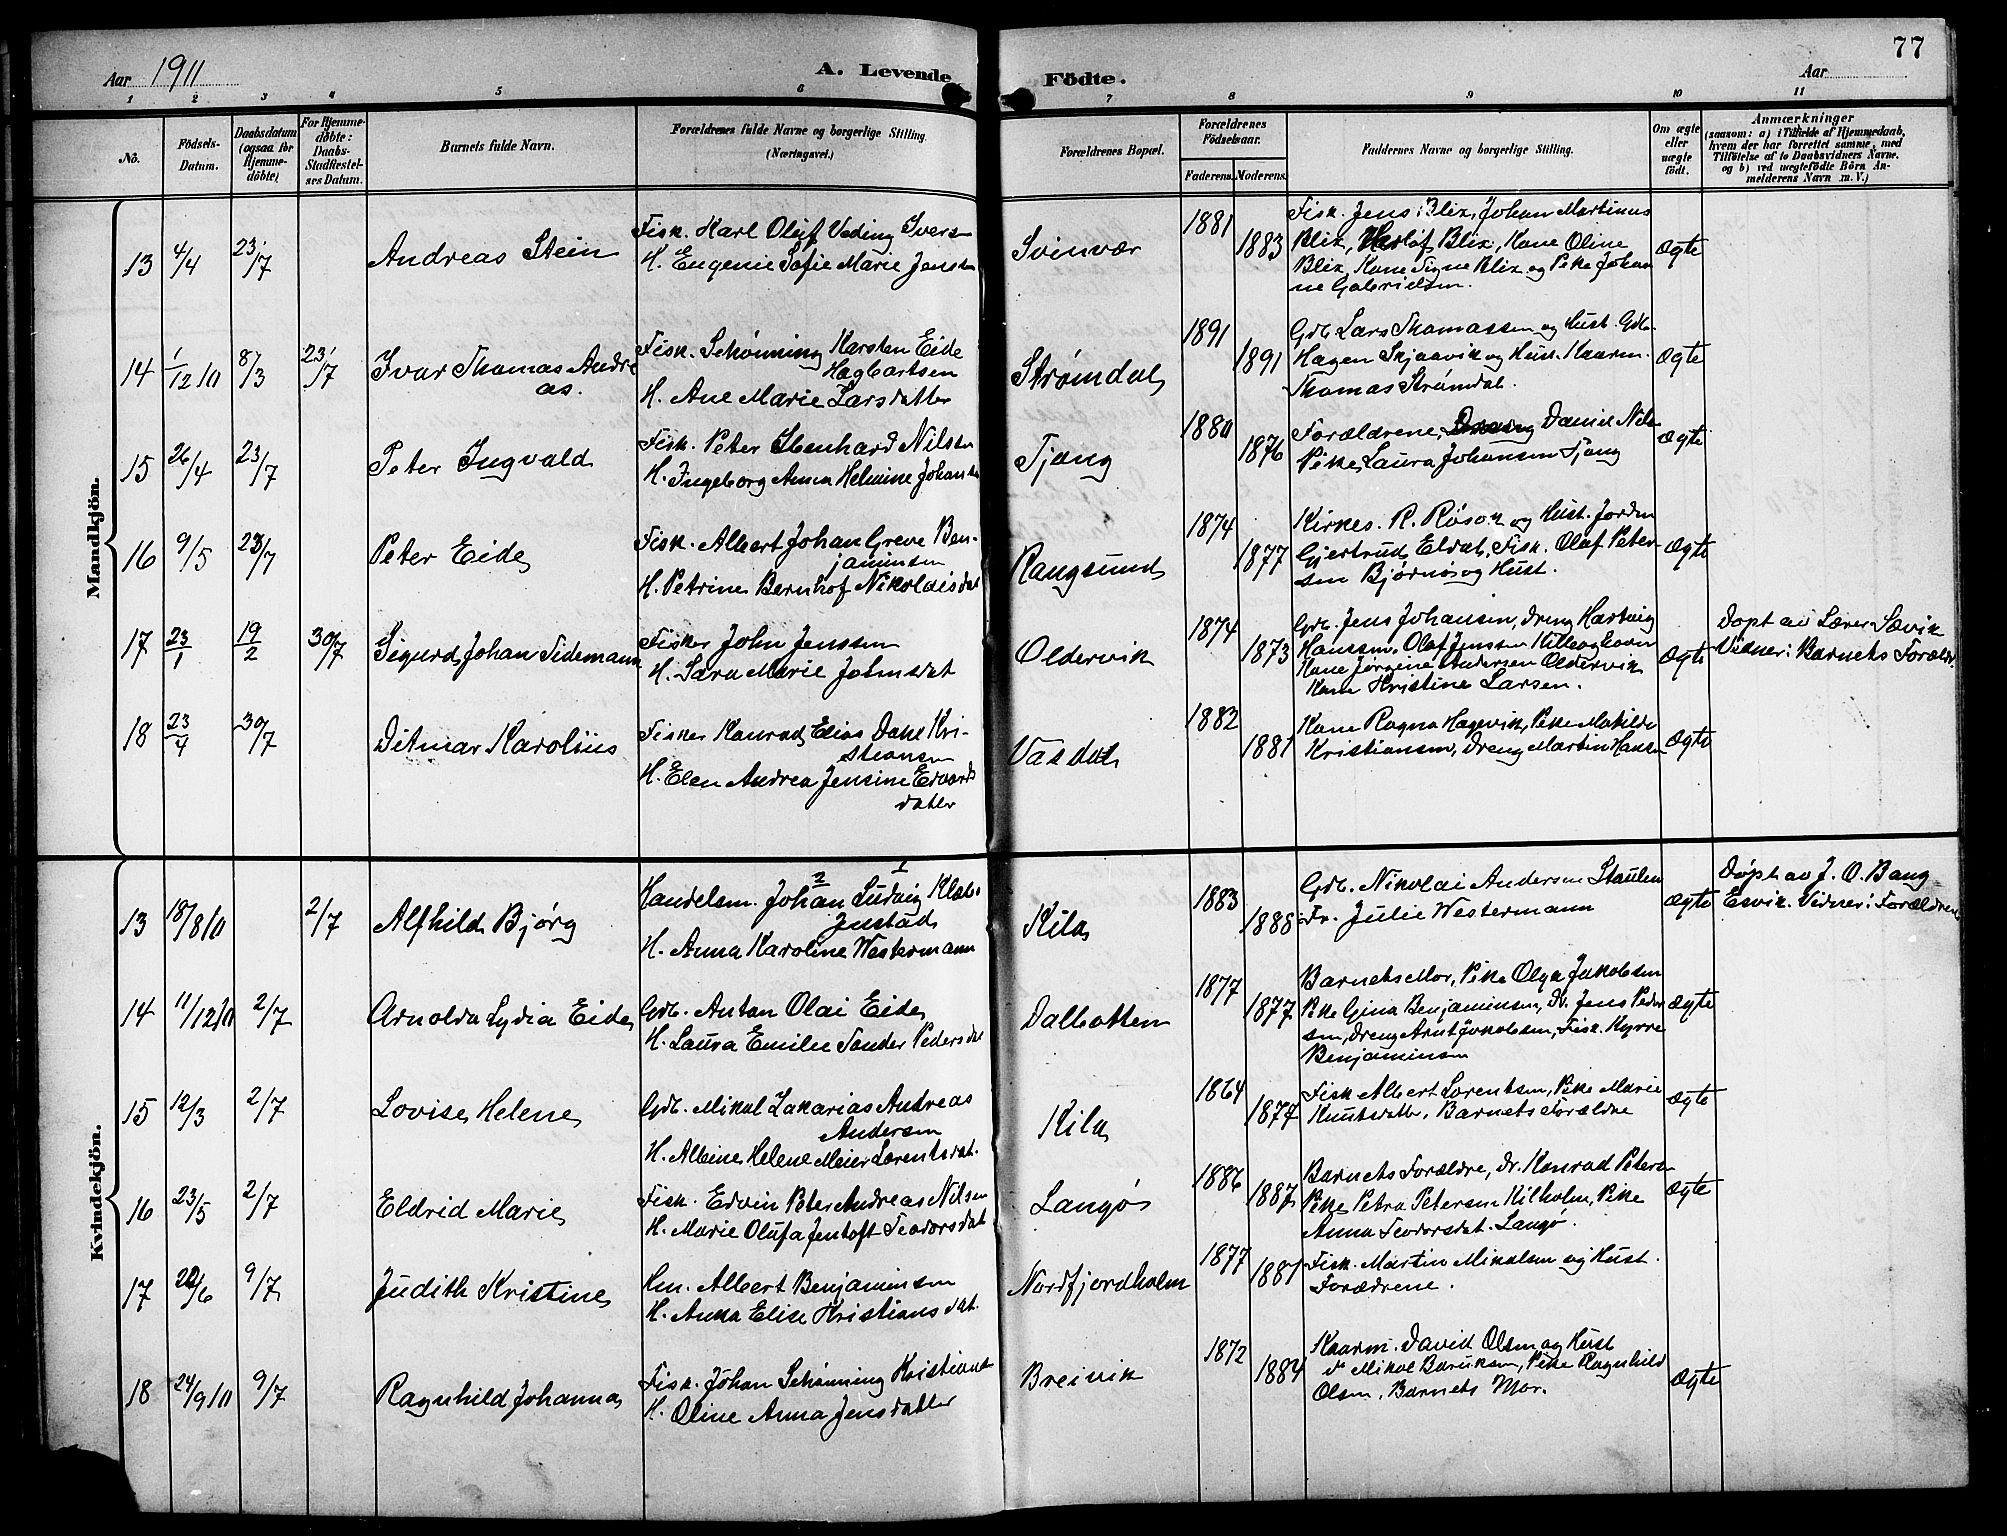 Aar 1911
A. Levende Födte.
Aar
77
1 2 3 4 5 6 7 8 9 10 11
No.
Födsels-Datum.
Daabsdatum (ogsaa for Hjemmedöbte)
For Hjemmedöbte: Daabs-Stadfæstelses Datum.
Barnets fulde Navn.
Forældrenes fulde Navne og borgerlige Stilling. (Næringsvei.)
Forældrenes Bopæl.
Forældrenes Födselsaar.
Faderens. Moderens.
Faddernes Navne og borgerlige Stilling.
Om ægte eller uægte födt.
Anmærkninger
(saasom: a) i Tilfælde af Hjemmedaab,
hvem der har forrettet samme, med
Tilföielse af to Daabsvidners Navne.
og b) ved uægtefödte Börn Anmelderens Navn m. V.)
Mandkjön.
13 4/4 23/7 Andreas Stein
Fisk. Karl Oluf Veding Ivers
H. Eugenie Sofie Marie Jensen
Svinvær 1881 1883
Fisk. Jens Blix, Johan Martinus
Blix, Blix, Kone Oline
Blix, Kone Signe Blix og Pike Johan
ne Gabrielsen.
Ægte
14 1/12 10 8/3 23/7 Ivar Thomas Andre
as.
Fisk. Schønning Karsten Eide
Hagbartsen
H. Ane Marie Larsdatter
Strømdal 1891 1891
Gdb. Lars Thomassen og Hust. Gdb.
Hagen Skjaavik og Hust. Kaarm.
Thomas Strømdal.
Ægte
15 26/4 23/7 Peter Ingvald
Fisk. Peter Ebenhard Nilsen
H. Ingeborg Anna Helmine Johans
Tjong 1880 1876
Forældrene, Daniel Nils
Pike Laura Johansen Tjong
Ægte
16 9/5 23/7 Peter Eide
Fisk. Albert Johan Greve Ben-
jaminsen
H. Petrine Bernhof Nikolaisdat
Rangsund 1874 1877
Kirkes. R. Røsok og Hust. Jordm
Gjertrud Eldal, Fisk. Olaf Peter-
sen Bjørnø og Hust.
Ægte
17 23/1 19/2 30/7 Sigurd Johan Tidemann
Fisker John Jenssen
H. Sara Marie Johnsdat
Oldervik 1874 1873
Gdb. Jens Johansen, Dreng Hartvig
Hanssen, Olaf Jenssen
Kone Jørgine Andersen Oldervik
Kone Kristine Larsen.
Ægte
Døpt av Lærer Sævik
Vidner: Barnets Forældr.
18 23/4 30/7 Ditmar Karolius
Fisker Konrad Elias Dahl Kri-
stiansen
H. Elen Andrea Jensine Edvards
datter
Vasdal 1882 1881
Kone Ragna Hagevik, Pike Matilde
Kristiansen, Dreng Martin Hansen
Ægte
Kvindekjön.
13 18/8 10 2/7 Alfhild Bjørg
2 1
Handelsm. Johan Ludvig Klæbo
Justad
H. Anna Karoline Westermann
Kila 1883 1888
Gdb. Nikolai Andersen Staulen
Fr. Julie Westermann
Ægte
Døpt av J. O. Bang
Esvik. Vidner: Forældrene
14 11/12 10 2/7 Arnolda Lydia Eide
Gdb. Anton Olai Eide
H. Laura Emilie Tonder Pedersdat
Dalbotten 1877 1877
Barnets Mor, Pike Olga Jakobsen
Pike Gina Benjaminsen, Dr. Jens Peder
sen, Dreng Arnt Jakobsen, Fisk. Kyrre
Benjaminsen
Ægte
15 12/3 2/7 Lovise Helene
Gdb. Mikal Zakarias Andreas
Andersen
H. Albine Helene Meier Lorentsdat.
Kila 1864 1874
Fisk Albert Lorentsen, Pike Marie
Knutsdatter, Barnets Forældre
Ægte
16 23/5 2/7 Eldrid Marie
Fisk. Edvin Peter Andreas Nilsen
H. Marie Olufa Jentoft Teodorsdat
Langø 1886 1887
Barnets Forældre, Dr. Konrad Peters
Pike Petra Petersen Kilholm, Pike
Anna Teodorsdat. Langø.
Ægte
17 22/6 9/7 Judith Kristine
Em. Albert Benjaminsen
H. Anna Elise Kristiansdat.
Nordfjordholm 1877 1887
Fisk. Martin Mikalsen og Hust.
Forædrene.
18 24/9 10 9/7 Ragnhild Johanna
Fisk. Johan Schønning Kristians
H. Oline Anna Jensdatter
Breivik 1872 1884
Kaarm. David Olsen og Hust
Dr Mikal Baruksen, Pike Ragnhild
Olsen, Barnets Mor.
Ægte